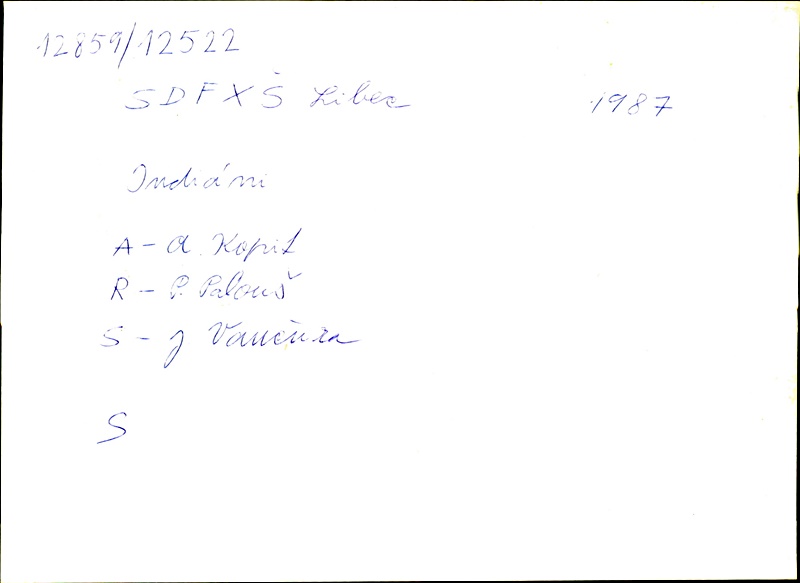 12859/12522
SDFXŠ Liberec 1987
Indiáni
A - A. Kopit
R - P. Palouš
S - J Vančura
S